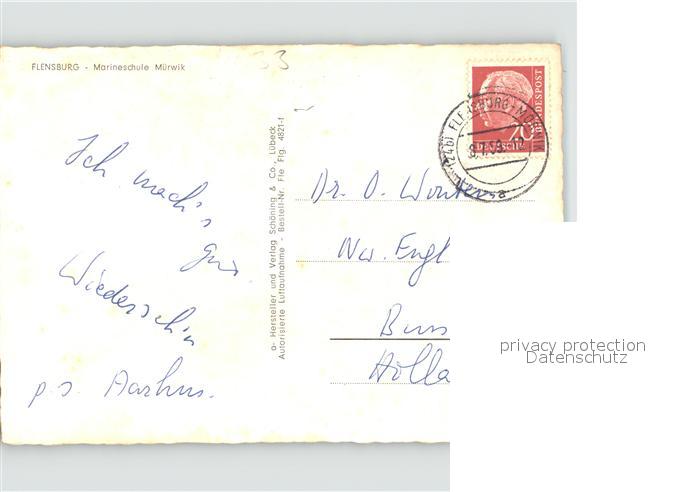 FLENSBURG - Marineschule Mürwik
33
Ich mach's
gut
Wiedersehin
p.s. Aarhus.
a- Hersteller und Verlag Schöning & Co., Lübeck
Autorisierte Luftaufnahme - Bestell-Nr. Fle Flg. 4821-f
DEUTSCHE
BUNDESPOST
20
(24b) FLENSBURG-MÜR
a
Dr. O. Winters
Nw. Engl
Buss
Holla
privacy protection
Datenschutz